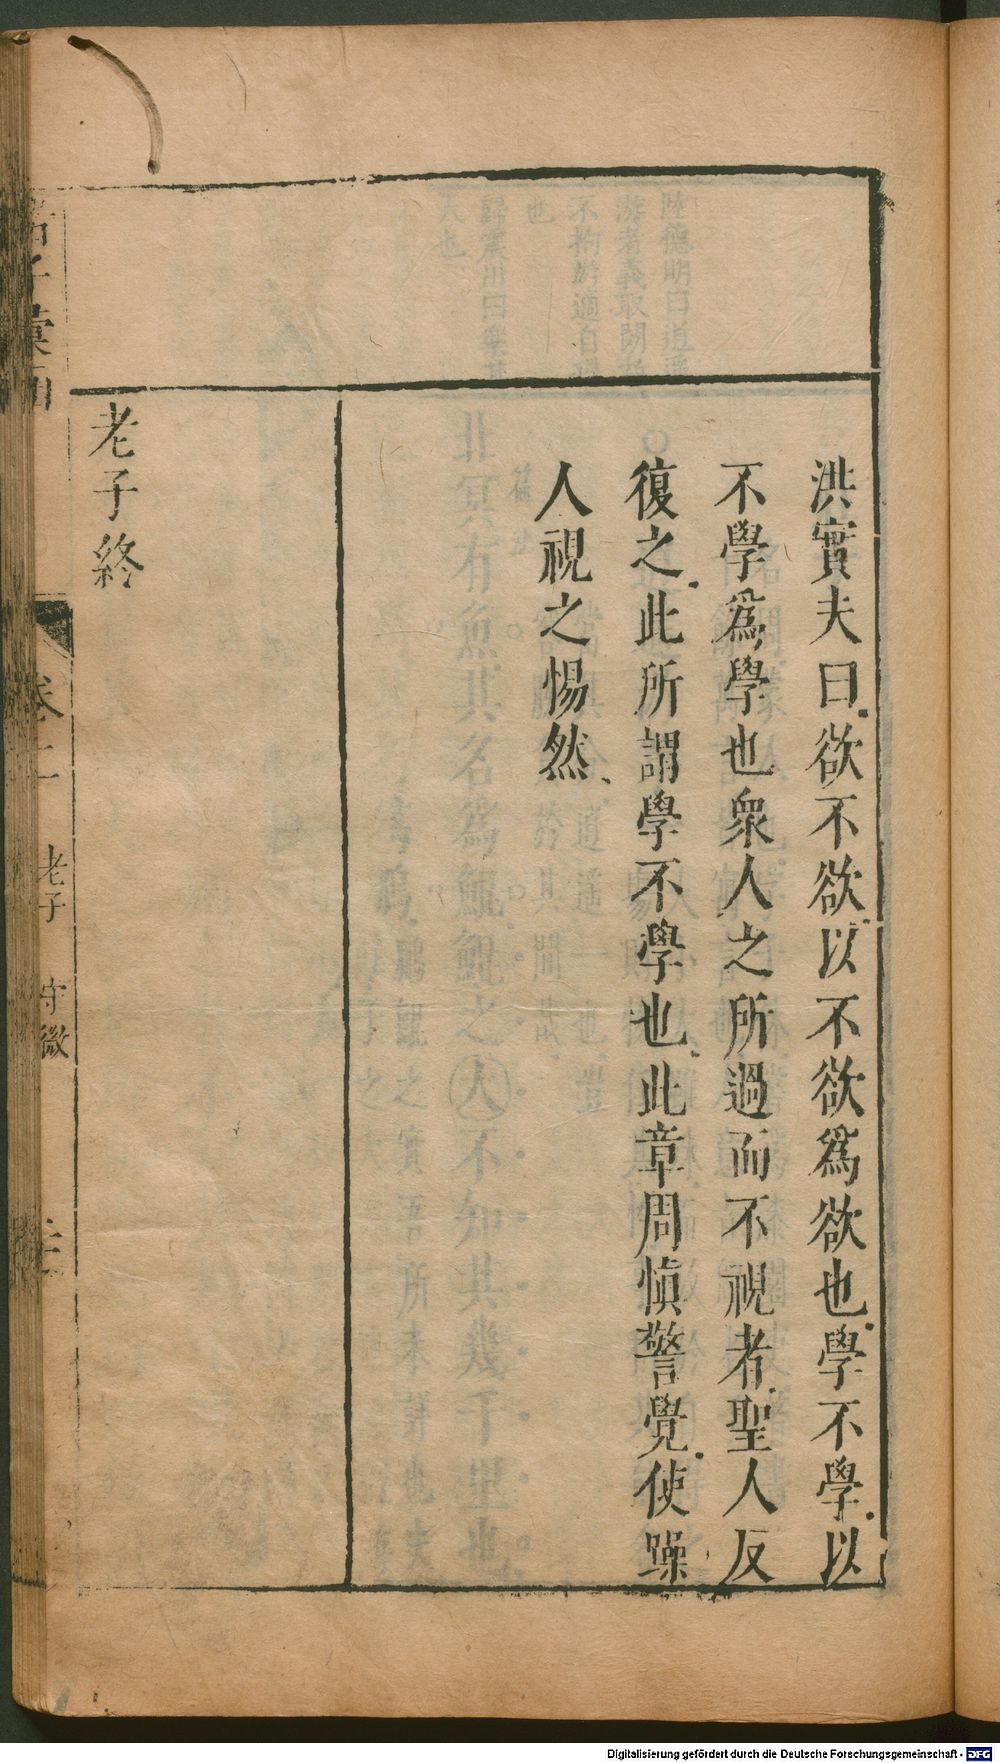 洪實夫曰欲不欲以不欲爲欲也學不學以
不學爲學也衆人之所過而不視者聖人反
復之此所謂學不學也此章周愼警覺使躁
人視之惕然
老子終
卷二 老子 守微
Digitalisierung gefördert durch die Deutsche Forschungsgemeinschaft - DFG